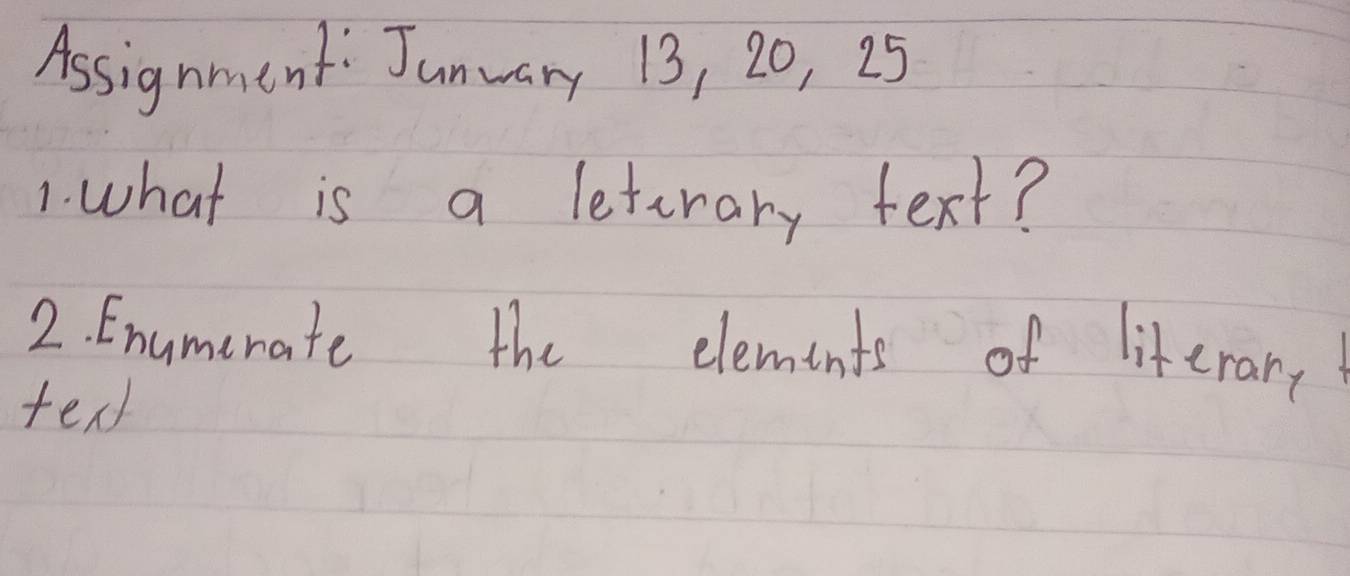 Assignment: Junwary 13, 20, 25
1. What is a leterary text?
2. Enumerate the elements of literary t
text